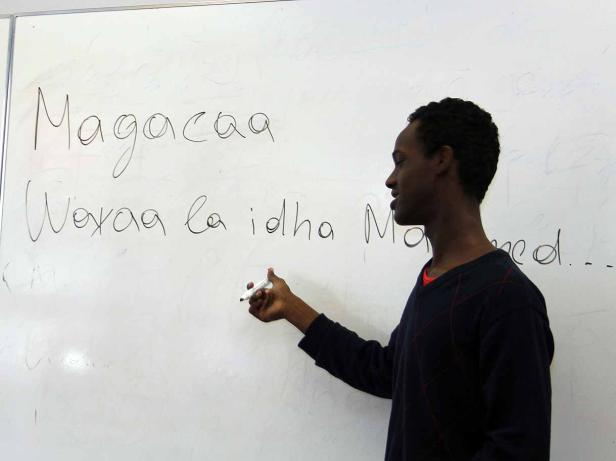 Magacaa
Waxaa la idha